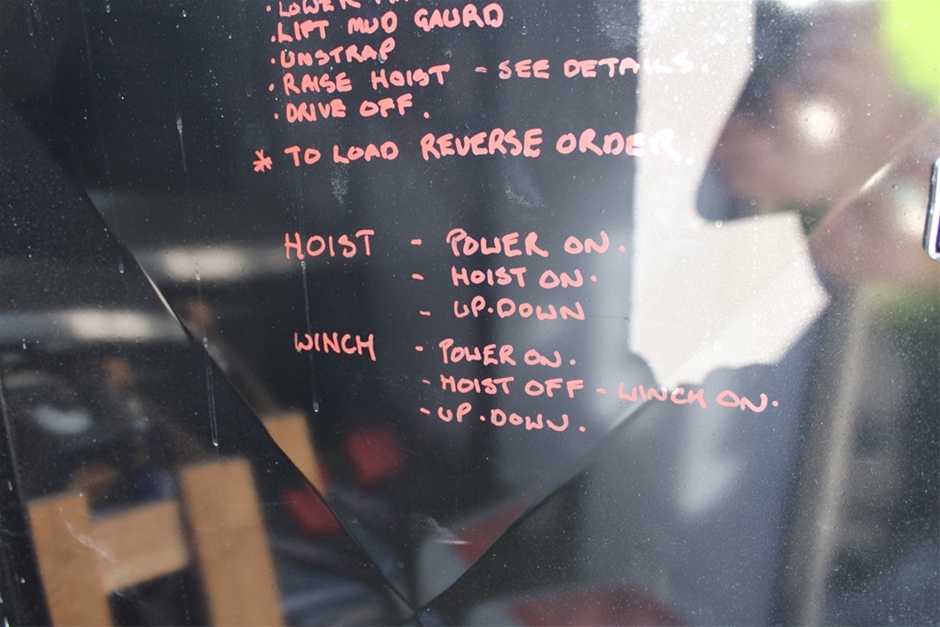 · LOWER
· LIFT MUD GAURD
· UNSTRAP
· RAISE HOIST - SEE DETAILS.
· DRIVE OFF.
* TO LOAD REVERSE ORDER.
HOIST - POWER ON.
- HOIST ON.
- UP·DOWN
WINCH - POWER ON.
- HOIST OFF - WINCH ON.
- UP·DOWN.